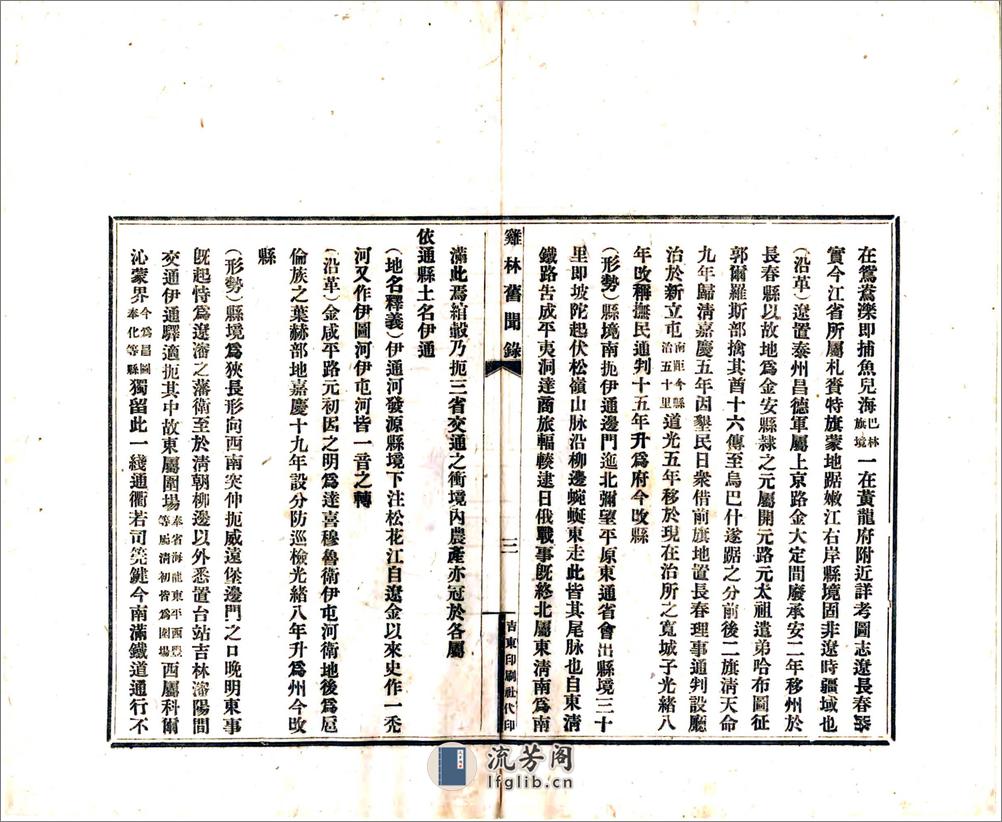 在鴛鴦濼即捕魚兒海巴林旗境一在黃龍府附近詳考圖志遼長春
實今江省所屬札賚特旗蒙地踞嫩江右岸縣境固非遼時疆域也
（沿革）遼置泰州昌德軍屬上京路金大定間廢承安二年移州於
長春縣以故地爲金安縣隸之元屬開元路元太祖遣弟哈布圖征
郭爾羅斯部擒其酋十六傳至烏巴什遂踞之分前後二旗淸天命
九年歸淸嘉慶五年因墾民日衆借前旗地置長春理事通判設廳
治於新立屯南距今縣治五十里道光五年移於現在治所之寬城子光緒八
年改稱撫民通判十五年升爲府今改縣
（形勢）縣境南扼伊通邊門迤北彌望平原東通省會出縣境三十
里即坡陀起伏松嶺山脉沿柳邊蜿蜒東走此皆其尾脉也自東淸
鐵路吿成平夷洞達商旅輻輳逮日俄戰事旣終北屬東淸南爲南
雞林舊聞錄
三
吉東印刷社代印
滿此焉綰轂乃扼三省交通之衝境內農產亦冠於各屬
依通縣土名伊通
（地名釋義）伊通河發源縣境下注松花江自遼金以來史作一禿
河又作伊圖河伊屯河皆一音之轉
（沿革）金咸平路元初因之明爲達喜穆魯衛伊屯河衛地後爲扈
倫族之葉赫部地嘉慶十九年設分防巡檢光緒八年升爲州今改
縣
（形勢）縣境爲狹長形向西南突伸扼威遠堡邊門之口晚明東事
旣起恃爲遼瀋之藩衛至於淸朝柳邊以外悉置台站吉林瀋陽間
交通伊通驛適扼其中故東屬圍場奉省海龍東平西豐等屬清初皆爲圍場西屬科爾
沁蒙界今爲昌圖奉化等縣獨留此一綫通衢若司筦鍵今南滿鐵道通行不
流芳阁
lfglib.cn